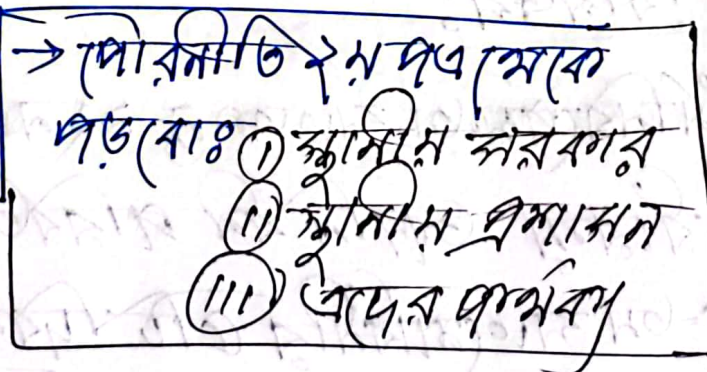 → পৌরনীতি ২য় পত্র থেকে
পড়বোঃ (i) স্থানীয় সরকার
(ii) স্থানীয় প্রশাসন
(iii) এদের পার্থক্য